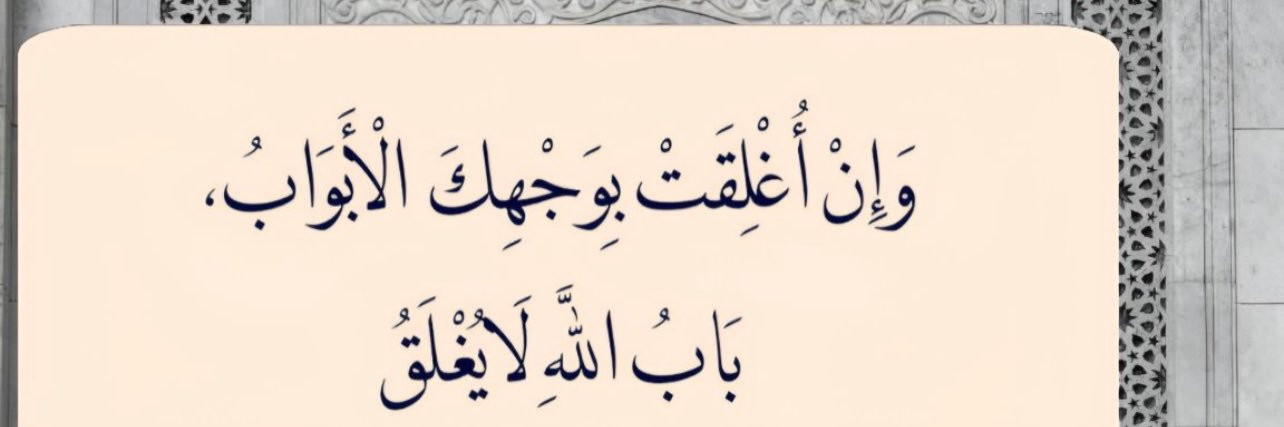 وَإِنْ أُغْلِقَتْ بِوَجْهِكَ الْأَبْوَابُ،
بَابُ اللَّهِ لَا يُغْلَقُ